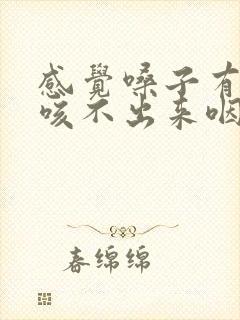 感覺嗓子有
咳不出来咽
春绵绵